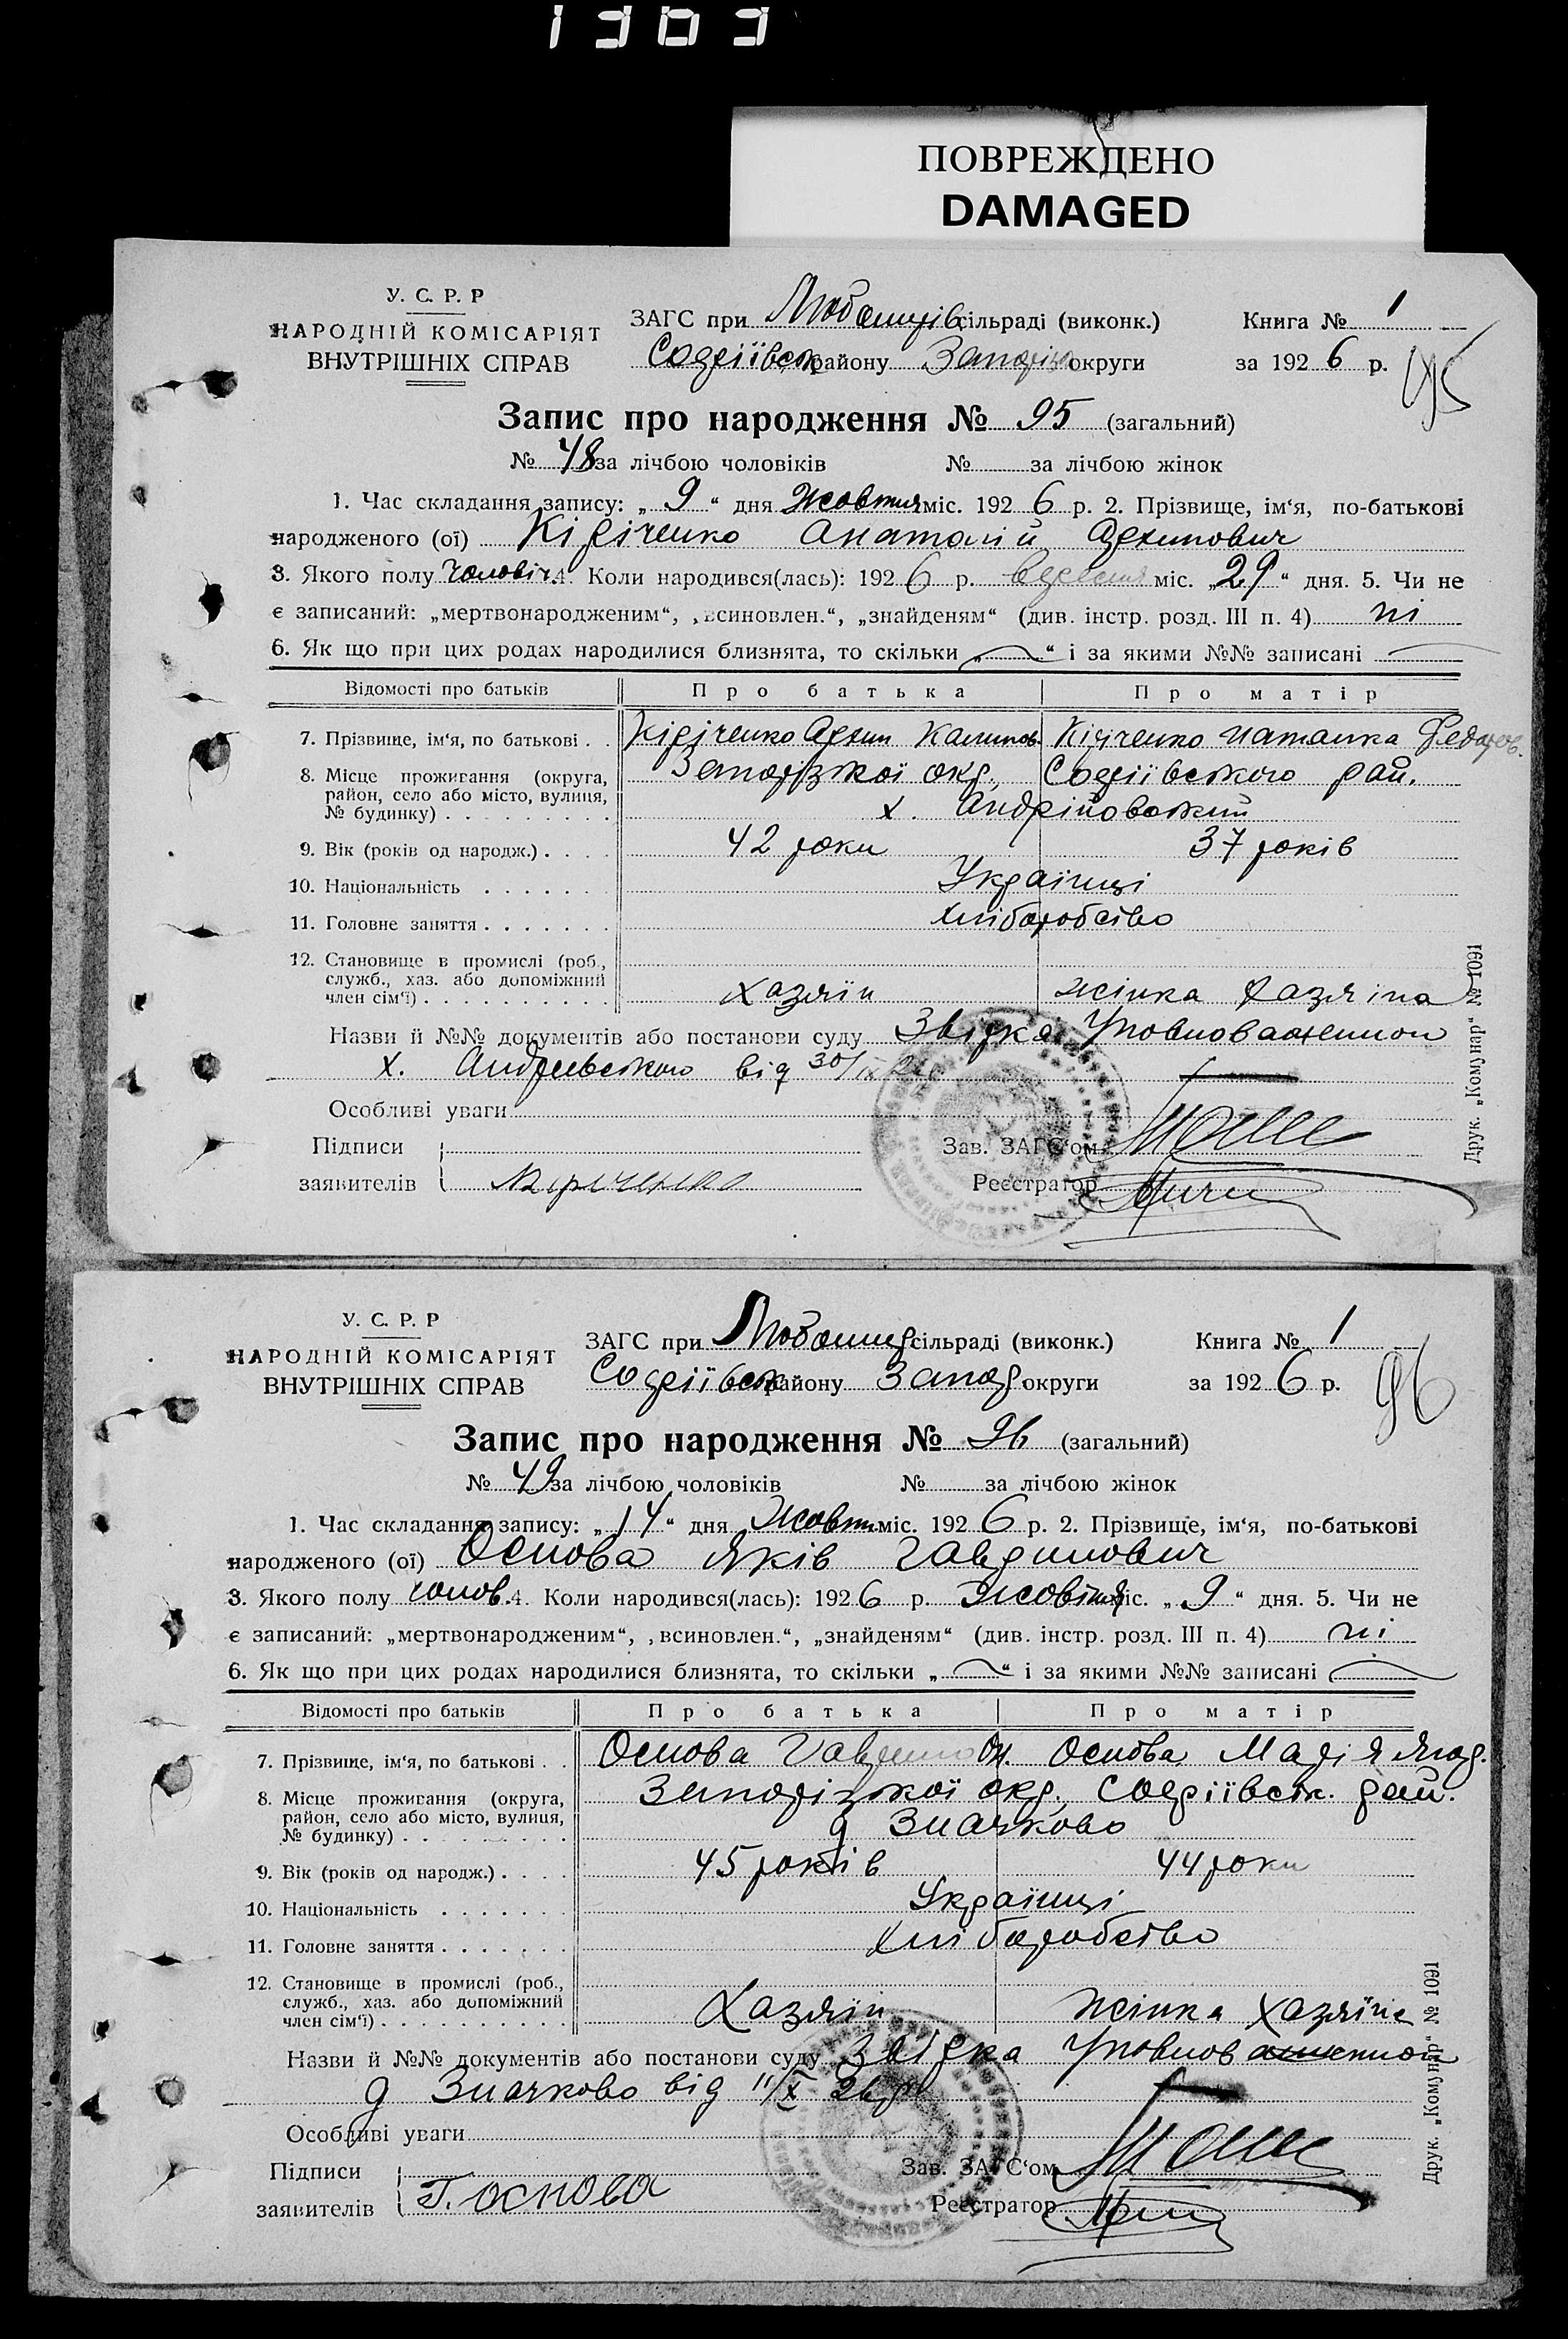 1303
ПОВРЕЖДЕНО
DAMAGED
У. С. Р. Р
НАРОДНІЙ КОМІСАРІЯТ
ВНУТРІШНІХ СПРАВ
ЗАГС при сільраді (виконк.)
Софіївськ району Запоріз округи
Книга № 1
за 1926 р.
95
Запис про народження № 95 (загальний)
№ 48 за лічбою чоловіків № за лічбою жінок
1. Час складання запису: „ 9 “ дня Жовтня міс. 1926 р. 2. Прізвище, ім‘я, по-батькові
народженого (ої) Кіріченко Анатолій Архипович
3. Якого полу чоловіч. 4. Коли народився(лась): 1926 р. вересня міс. „29“ дня. 5. Чи не
є записаний: „мертвонародженим“, „всиновлен.“, „знайденям“ (див. інстр. розд. III п. 4) ні
6. Як що при цих родах народилися близнята, то скільки „ “ і за якими №№ записані
Відомості про батьків Про батька Про матір
7. Прізвище, ім‘я, по батькові . . Кіріченко Архип Калинов. Кіріченко Наталка Федоров.
8. Місце проживання (округа, район, село або місто, вулиця, № будинку) . . . . . . . . . Запорізької окр., Софіївського рай.
х. Андрійовський
9. Вік (років од народж.) . . . . 42 роки 37 років
10. Національність . . . . . . Українці
11. Головне заняття . . . . . . . хліборобство
12. Становище в промислі (роб., служб., хаз. або допоміжний член сім‘ї) . . . . . . . . . . Хазяїн жінка хазяіна
Назви й №№ документів або постанови суду Звірка Уповноваженого
х. Андреевського від 30/IX 26
Особливі уваги
Підписи
заявителів Кириченко
Зав. ЗАГС‘ом
Реєстратор
Друк. „Комунар“ № 1091
У. С. Р. Р
НАРОДНІЙ КОМІСАРІЯТ
ВНУТРІШНІХ СПРАВ
ЗАГС при сільраді (виконк.)
Софіївськ району Запор округи
Книга № 1
за 1926 р.
96
Запис про народження № 96 (загальний)
№ 49 за лічбою чоловіків № за лічбою жінок
1. Час складання запису: „ 14 “ дня Жовтн. міс. 1926 р. 2. Прізвище, ім‘я, по-батькові
народженого (ої) Основа Яків Гаврилович
3. Якого полу чолов. 4. Коли народився(лась): 1926 р. жовтня міс. „ 9 “ дня. 5. Чи не
є записаний: „мертвонародженим“, „всиновлен.“, „знайденям“ (див. інстр. розд. III п. 4) ні
6. Як що при цих родах народилися близнята, то скільки „ “ і за якими №№ записані
Відомості про батьків Про батька Про матір
7. Прізвище, ім‘я, по батькові . . Основа Гаврило Основа Марія
8. Місце проживання (округа, район, село або місто, вулиця, № будинку) . . . . . . . . . Запорізької окр., Софіївськ. рай.
д Значково
9. Вік (років од народж.) . . . . 45 років 44 роки
10. Національність . . . . . . . Українці
11. Головне заняття . . . . . . . хліборобство
12. Становище в промислі (роб., служб., хаз. або допоміжний член сім‘ї) . . . . . . . . . . Хазяїн жінка хазяїна
Назви й №№ документів або постанови суду Звірка Уповноваженого
д Значково від 11/X 26 р
Особливі уваги
Підписи
заявителів Г. Основа
Зав. ЗАГС‘ом
Реєстратор
Друк. „Комунар“ № 1091